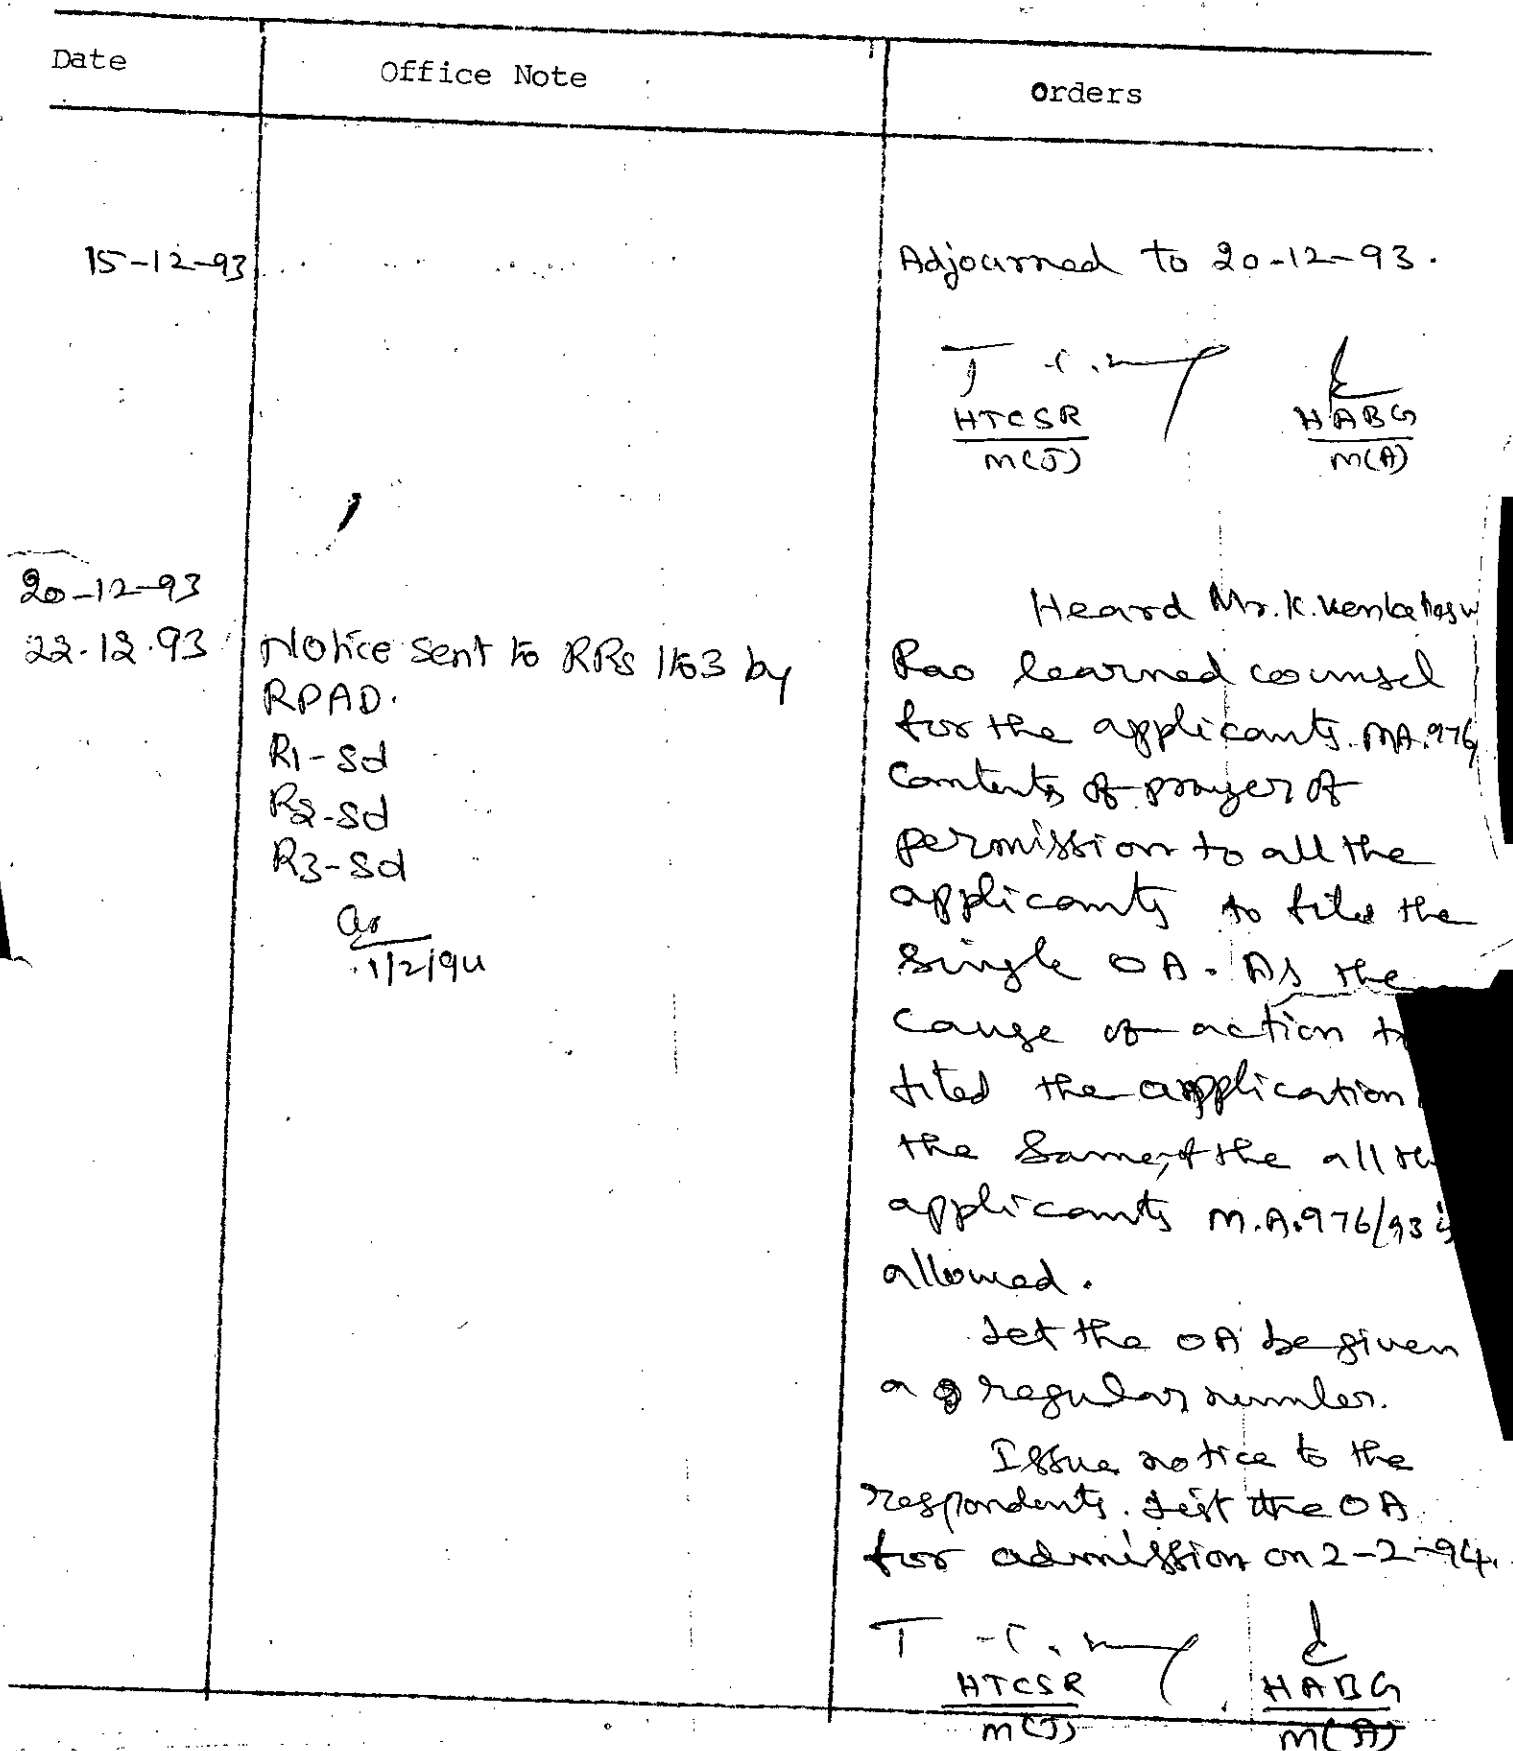 Date
Office Note
Orders
15-12-93
Adjourned to 20-12-93.
HTCSR
M(J)
HABG
M(A)
20-12-93
22.12.93
Notice sent to RRs 1to3 by
RPAD.
R1-Sd
R2-Sd
R3-Sd
1/2/94
Heard Mr. K. Venkatesw
Rao learned counsel
for the applicants. MA.976
Contents of prayer of
permission to all the
applicants to file the
Single OA. As the
Cause of action
filed the application
the Same, of the all the
applicants M.A.976/93 is
allowed.
Let the OA be given
a regular number.
Issue notice to the
respondents. List the OA
for admission on 2-2-94.
HTCSR
M(J)
HABG
M(A)